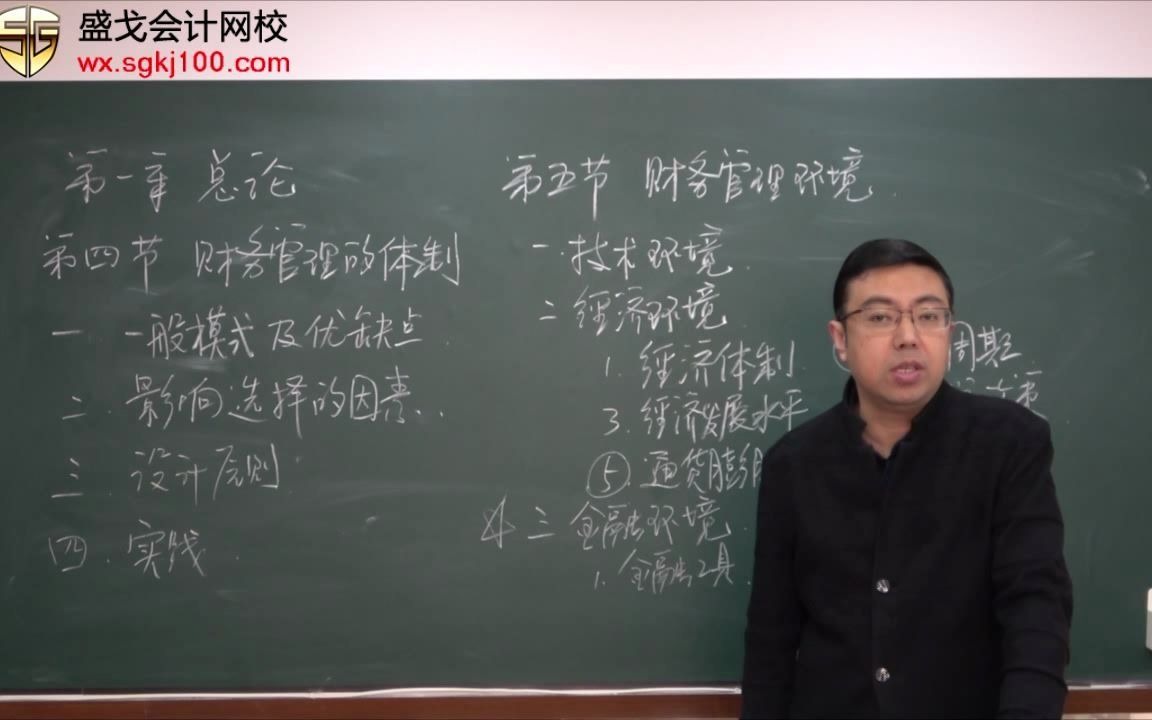 盛戈会计网校
wx.sgkj100.com
第一章 总论
第四节 财务管理的体制
一 一般模式及优缺点.
二. 影响选择的因素..
三. 设计原则
四. 实践.
第五节 财务管理环境.
一.技术环境.
二 经济环境.
1. 经济体制
周期
3. 经济发展水平
⑤.通货膨
三 金融环境.
1. 金融工具.